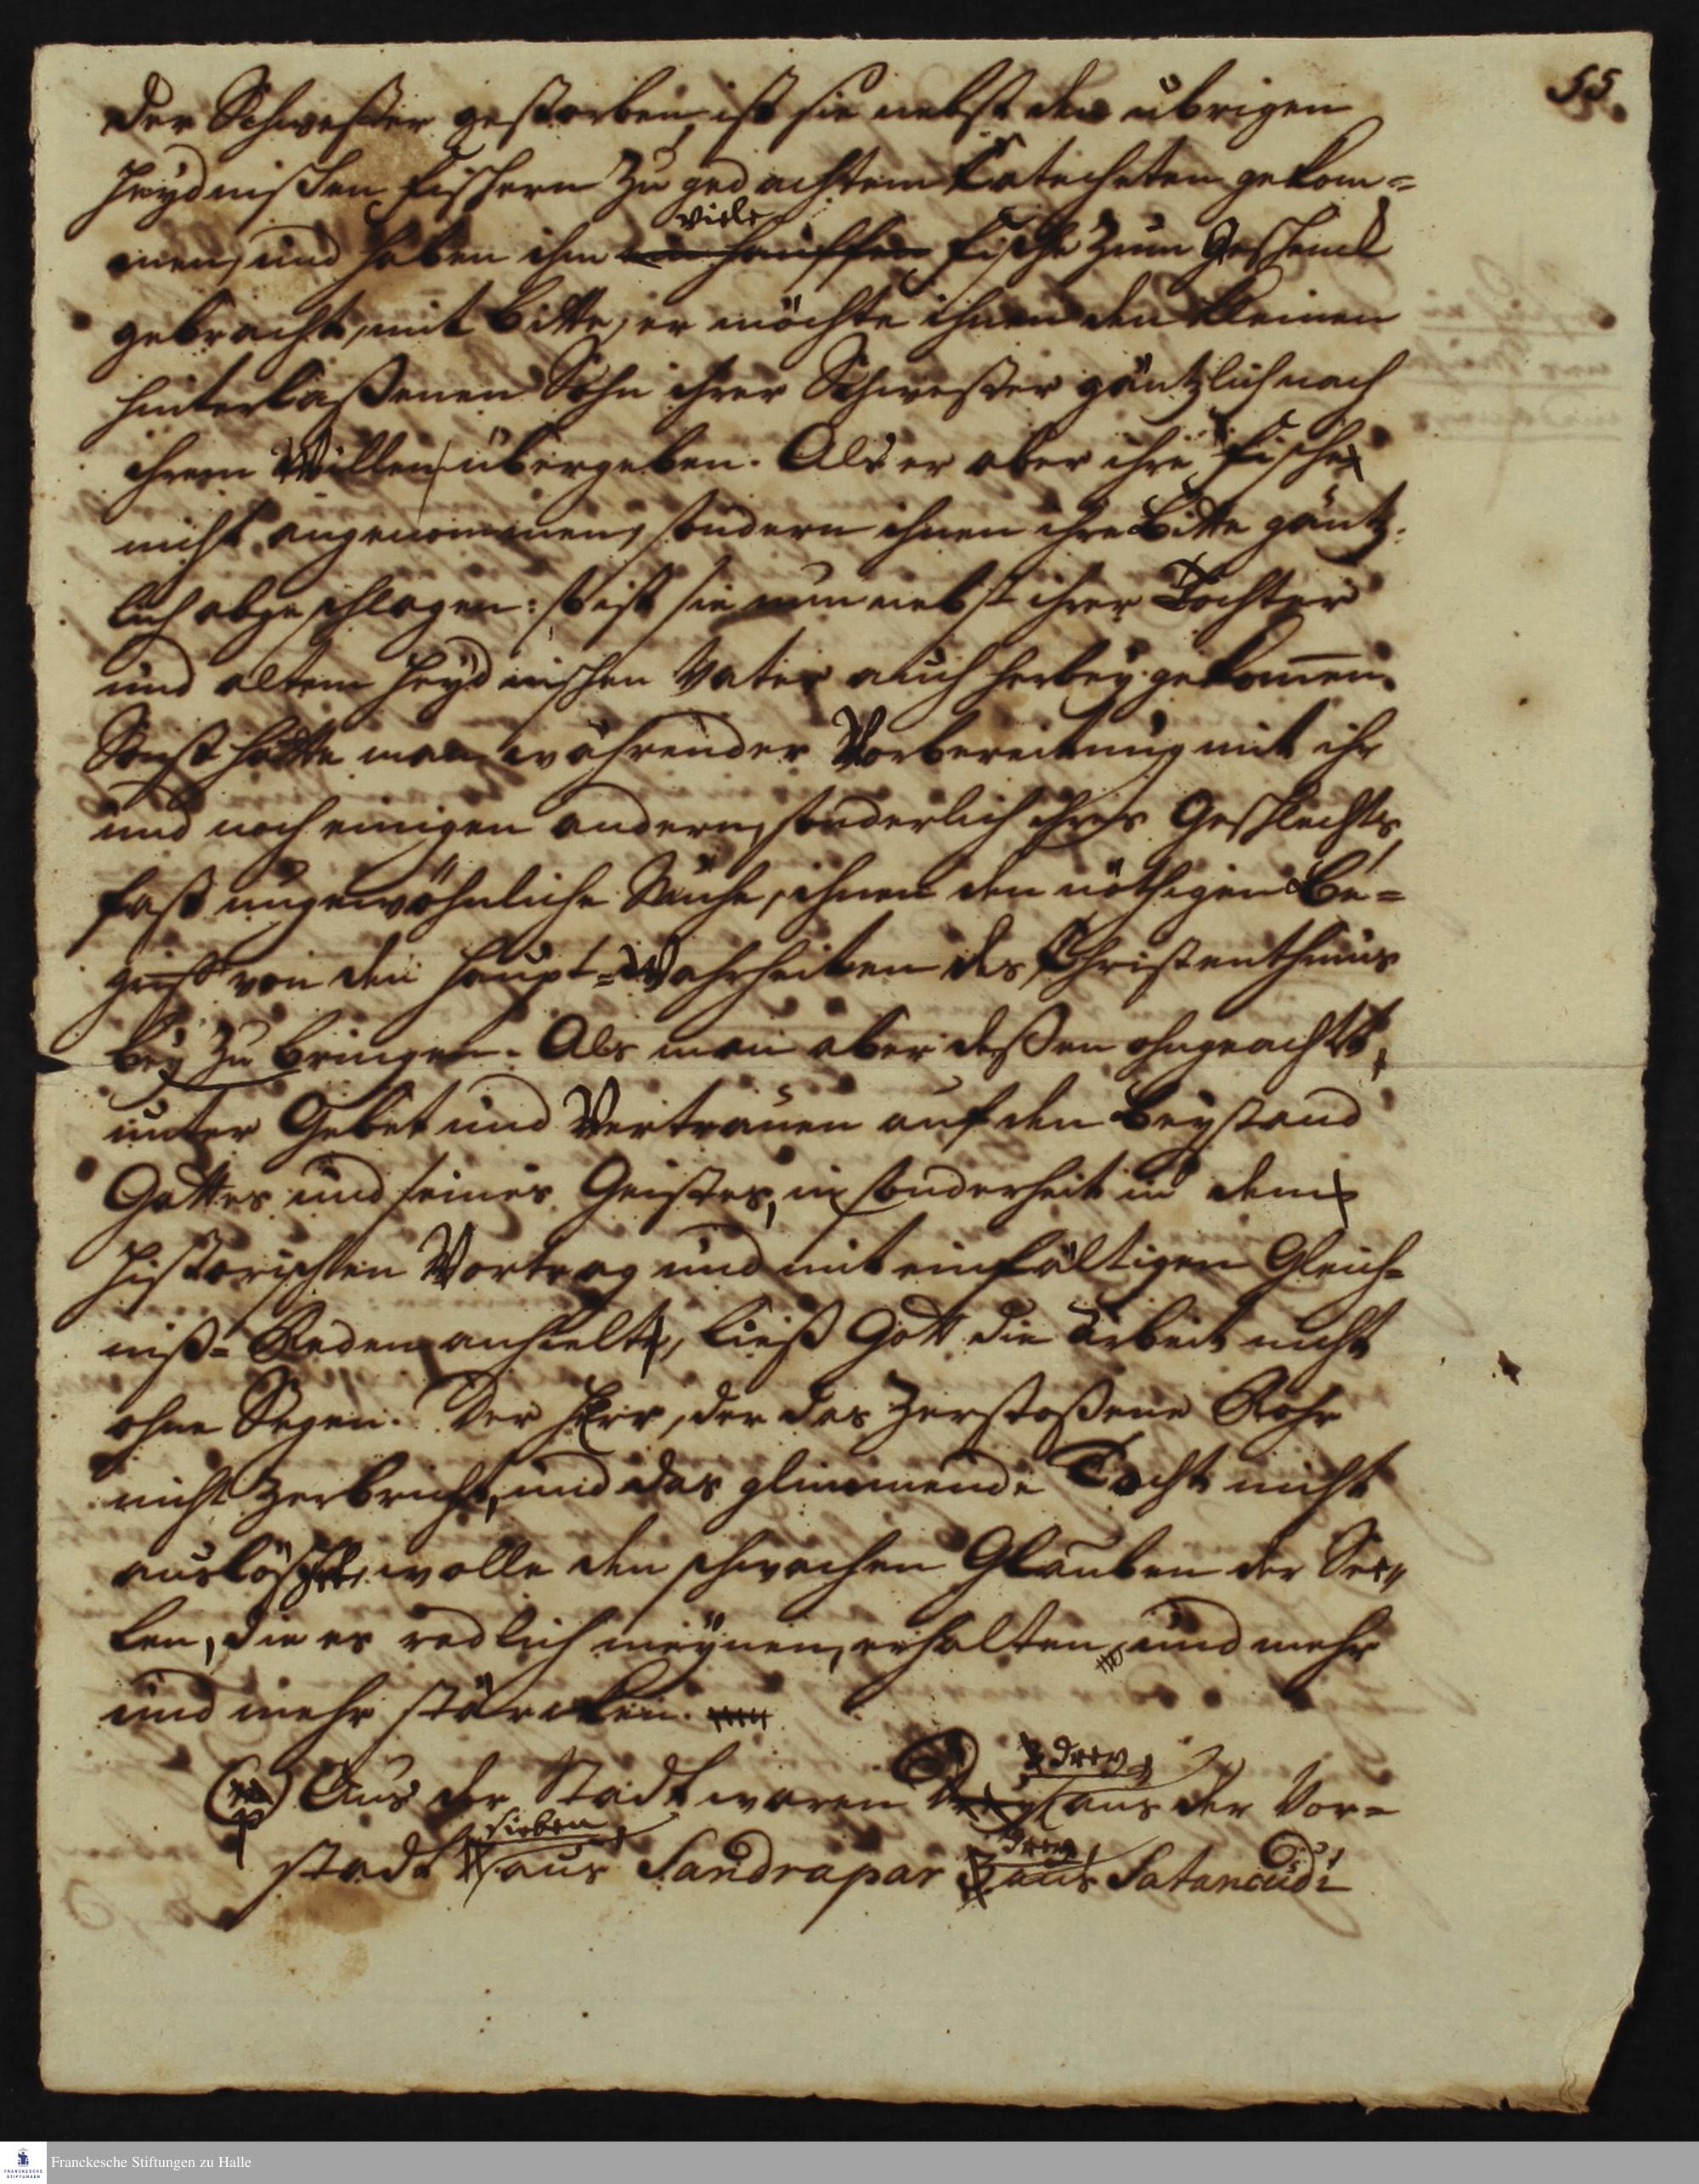 55.
der Schwester gestorben, ist sie nebst den übrigen
heydnischen Fischern zu gedachtem Catecheten gekom=
men, und haben ihm ein hauffen viele Fische zum Geschenck
gebracht, mit Bitte, er möchte ihnen den kleinen
hinterlaßenen Sohn ihrer Schwester gäntzlich nach
ihrem Willen übergeben. Als er aber ihre Fische
nicht angenommen, sondern ihnen ihre Bitte gäntz-
lich abgeschlagen: so ist sie nun nebst ihrer Tochter
und altem heydnischen Vater auch herbey gekommen.
Sonst hatte man währender Vorbereitung mit ihr
und noch einigen andern, sonderlich ihres Geschlechts
fast ungewöhnliche Mühe, ihnen den nöthigen Be=
griff von den Haupt=Wahrheiten des Christenthums
bey zu bringen. Als man aber deßen ohngeachtet,
unter Gebet und Vertrauen auf den Beystand
Gottes und seines Geistes, in sonderheit in dem
historischen Vortrag und mit einfältigen Gleich=
niß=Reden anhielte, ließ Gott die Arbeit nicht
ohne Segen. Der HErr, der das zerstoßene Rohr
nicht zerbricht, und das glimmende Tocht nicht
auslöscht, wolle den schwachen Glauben der See=
len, die es redlich meynen, erhalten, und mehr
und mehr stärcken.
Aus der Stadt waren drey, aus der Vor=
stadt sieben, aus Sandrapar drey, aus Satancudi
Franckesche Stiftungen zu Halle